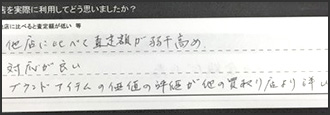 店を実際に利用してどう思いましたか？
店に比べると査定額が低い 等
他店に比べて査定額が若干高め。
対応が良い
ブランドアイテムの価値の評価が他の買取り店より詳し